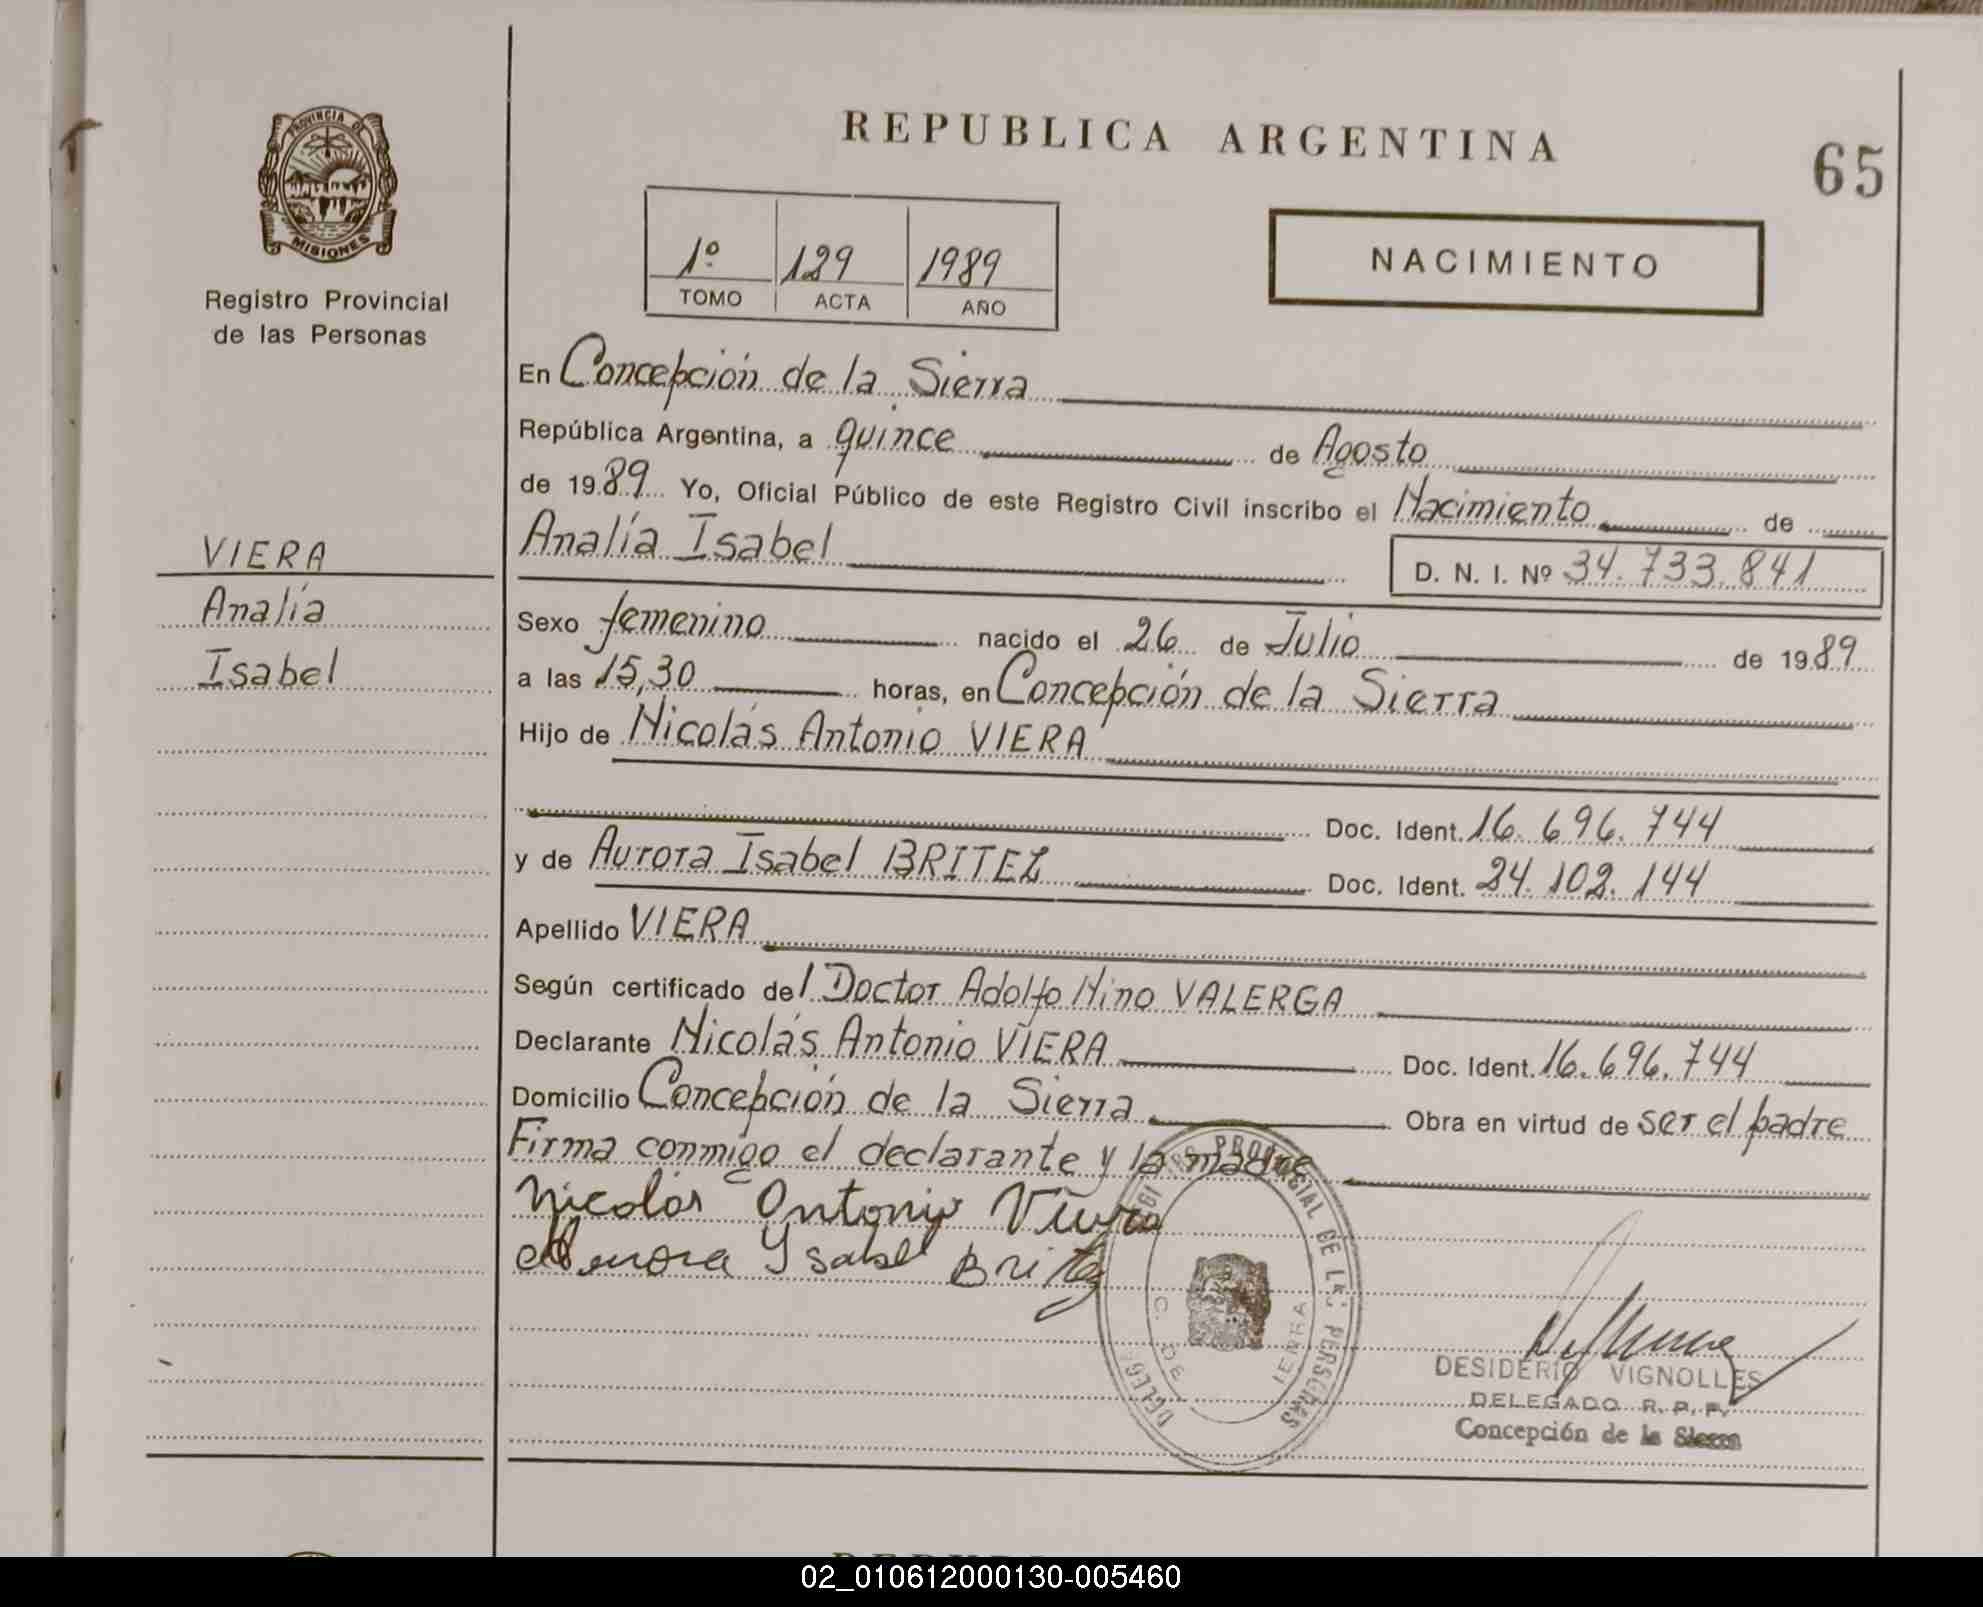 PROVINCIA DE
MISIONES
Registro Provincial
de las Personas
REPUBLICA ARGENTINA
65
1º 129 1989
TOMO ACTA AÑO
NACIMIENTO
VIERA
Analía
Isabel
En Concepción de la Sierra
República Argentina, a quince de Agosto
de 1989 Yo, Oficial Público de este Registro Civil inscribo el Nacimiento de
Analía Isabel D. N. I. Nº 34.733.841
Sexo femenino nacido el 26 de Julio de 1989
a las 15,30 horas, en Concepción de la Sierra
Hijo de Nicolás Antonio VIERA
Doc. Ident. 16.696.744
y de Aurora Isabel BRITEZ Doc. Ident. 24.102.144
Apellido VIERA
Según certificado del Doctor Adolfo Nino VALERGA
Declarante Nicolás Antonio VIERA Doc. Ident. 16.696.744
Domicilio Concepción de la Sierra Obra en virtud de ser el padre
Firma conmigo el declarante y la madre
Nicolás Antonio Viera
Aurora Ysabel Britez
PROVINCIAL DE LAS PERSONAS
C. DE
DESIDERIO VIGNOLLES
DELEGADO R. P. P.
Concepción de la Sierra
02_010612000130-005460